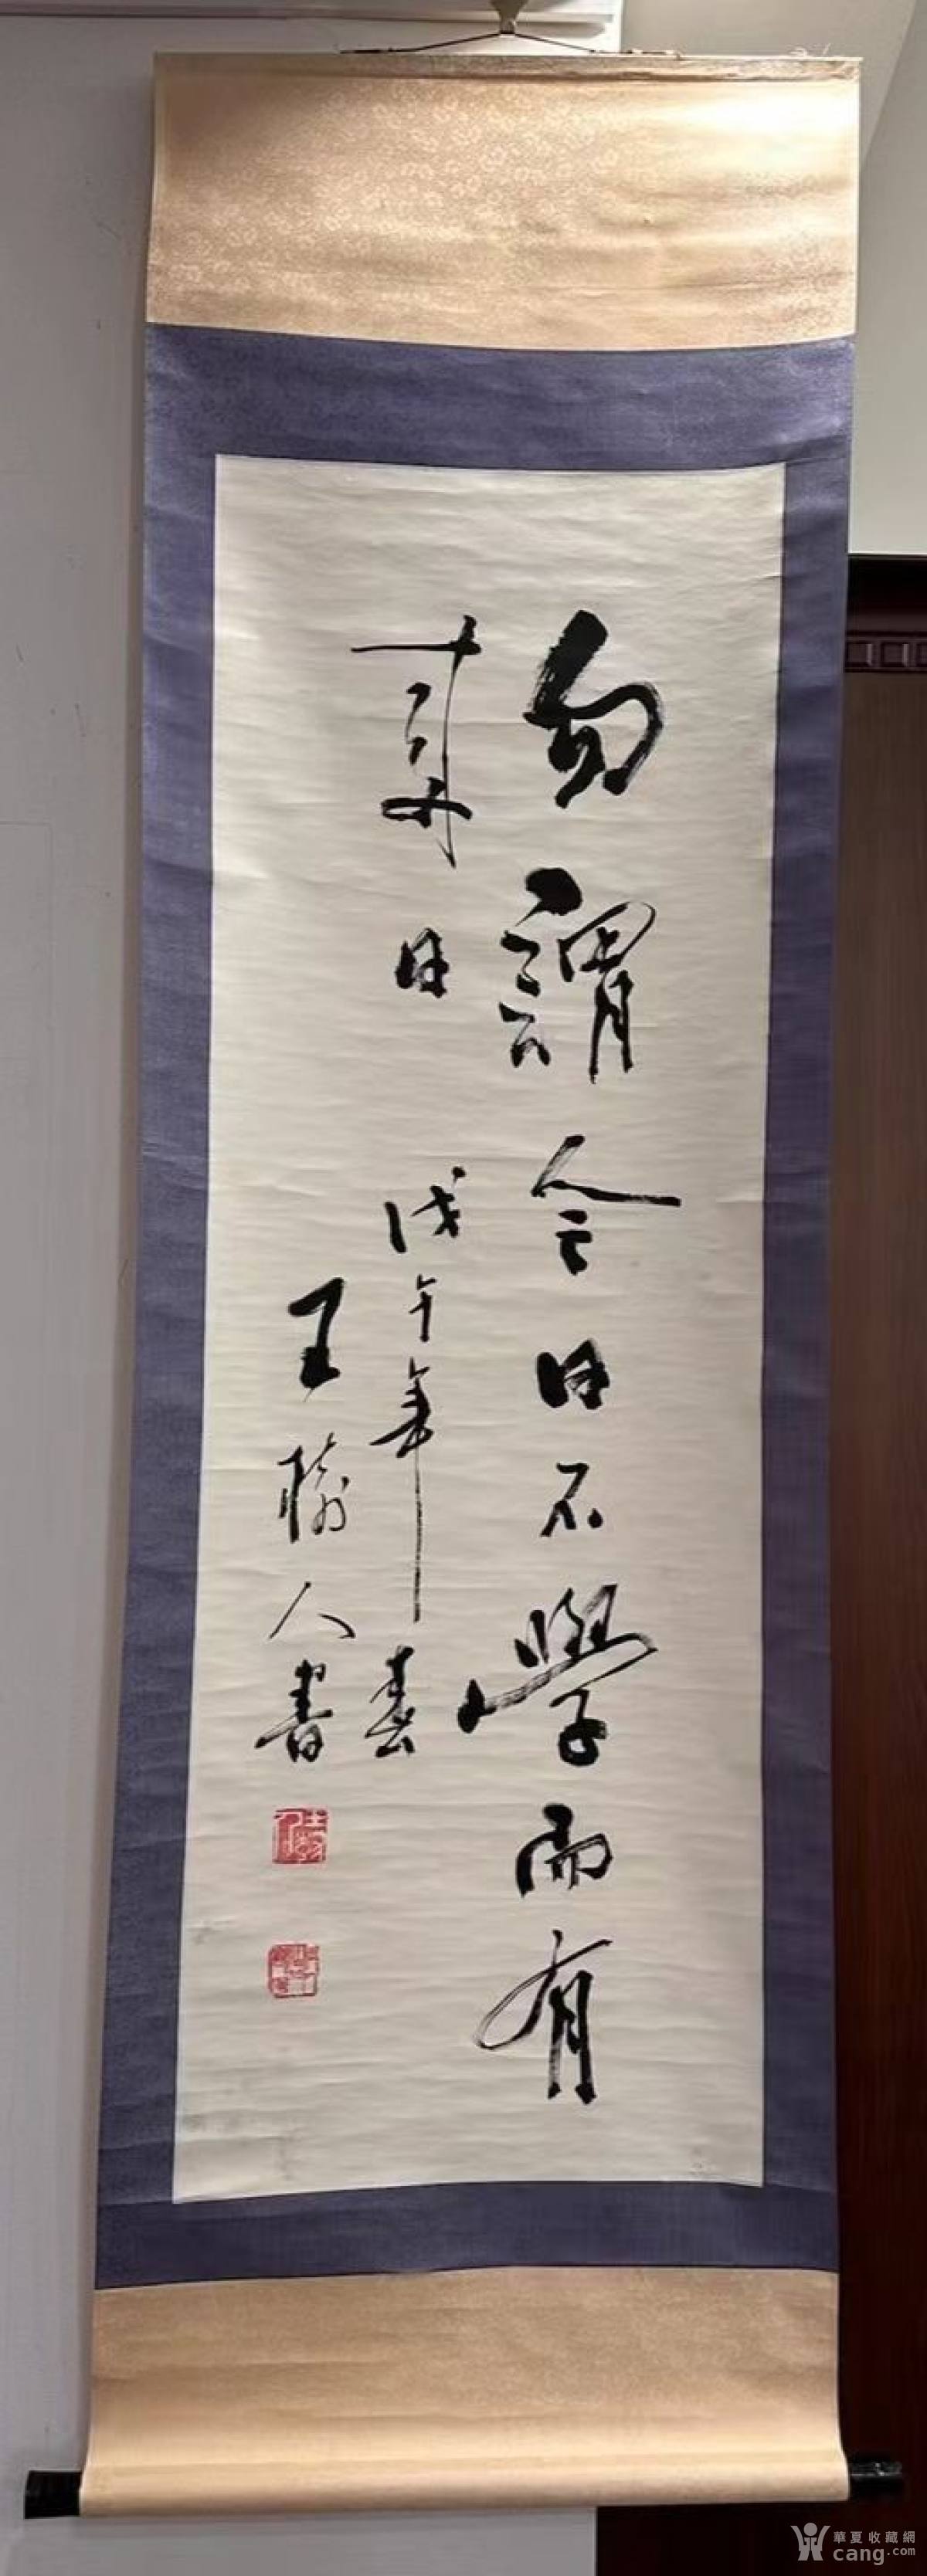 勿謂今日不學而有
來日
戊午年春
王
人書
華夏收藏網
cang.com